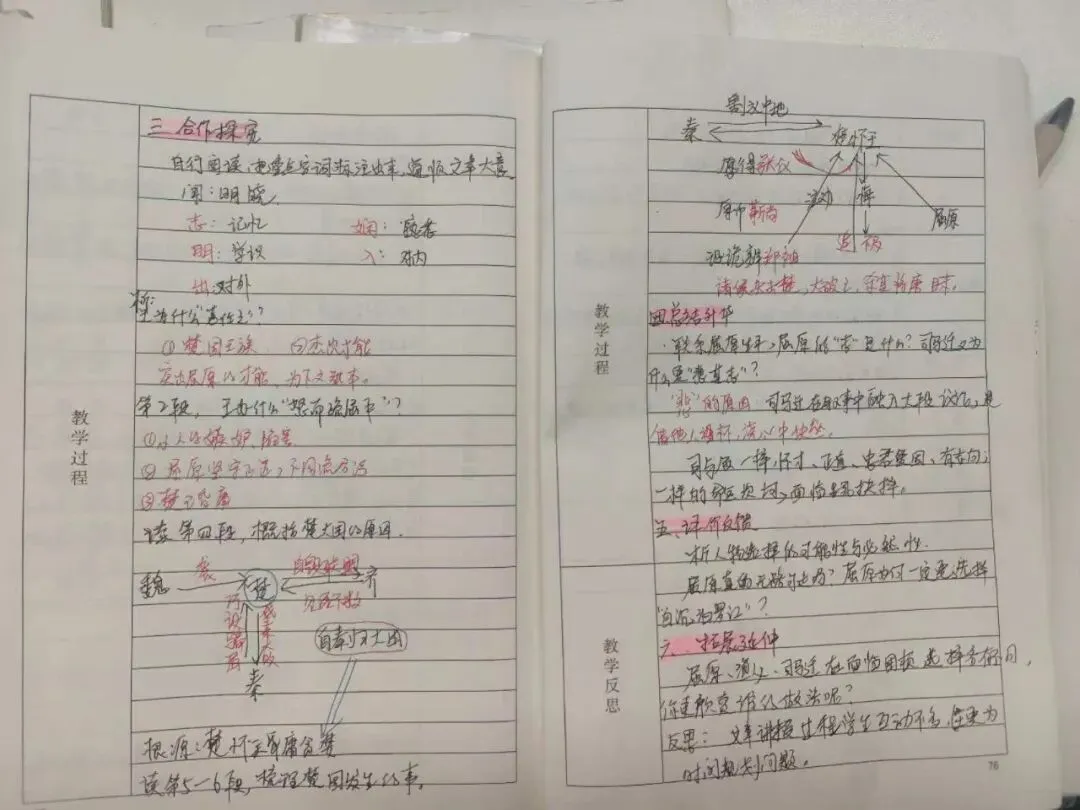 教学过程
三 合作探究
自行阅读,把重点字词标注出来,通顺文章大意
闻:明晓
志:记忆
娴:熟悉
明:学识
入:对内
出:对外
为什么“害任之”?
①楚国王族 ②杰出才能
突出屈原的才能,为下文
第2段,王为什么“怒而疏屈平”?
①小人的嫉妒
②屈原坚守正道,不同流合污
③楚王昏庸
读第四段,概括楚大困的原因
魏
袭
楚
自毁联盟
见死不救
齐
自牵
大困
秦
根源:楚怀王昏庸贪婪
读第5—6段,梳理楚国发生的事。
割汉中地
秦
怀王
张仪
靳尚
悔
追
屈原
设诡辩郑袖
诸侯共击楚,大破之,杀其将唐眛。
四总结升华
联系屈原生平,屈原的“志”是什么?司马迁又为
什么要“悲其志”?
“悲”的原因 司马迁在叙事中融入大段议论,是
借他人酒杯,浇心中块垒。
司与屈一样,怀才、正直、忠君爱国、有志向;
一样的命运坎坷,面临生死抉择。
五、评价反馈
析人物选择的可能性与必然性.
屈原真的无路可走吗?屈原为何一定要选择
“自沉汨罗江”?
教学反思
六、拓展延伸
屈原、渔父、司马迁在面临困顿选择各不同,
你更欣赏谁的做法呢?
反思: 文章讲授过程学生互动不多,主要为
时间规划问题。
76